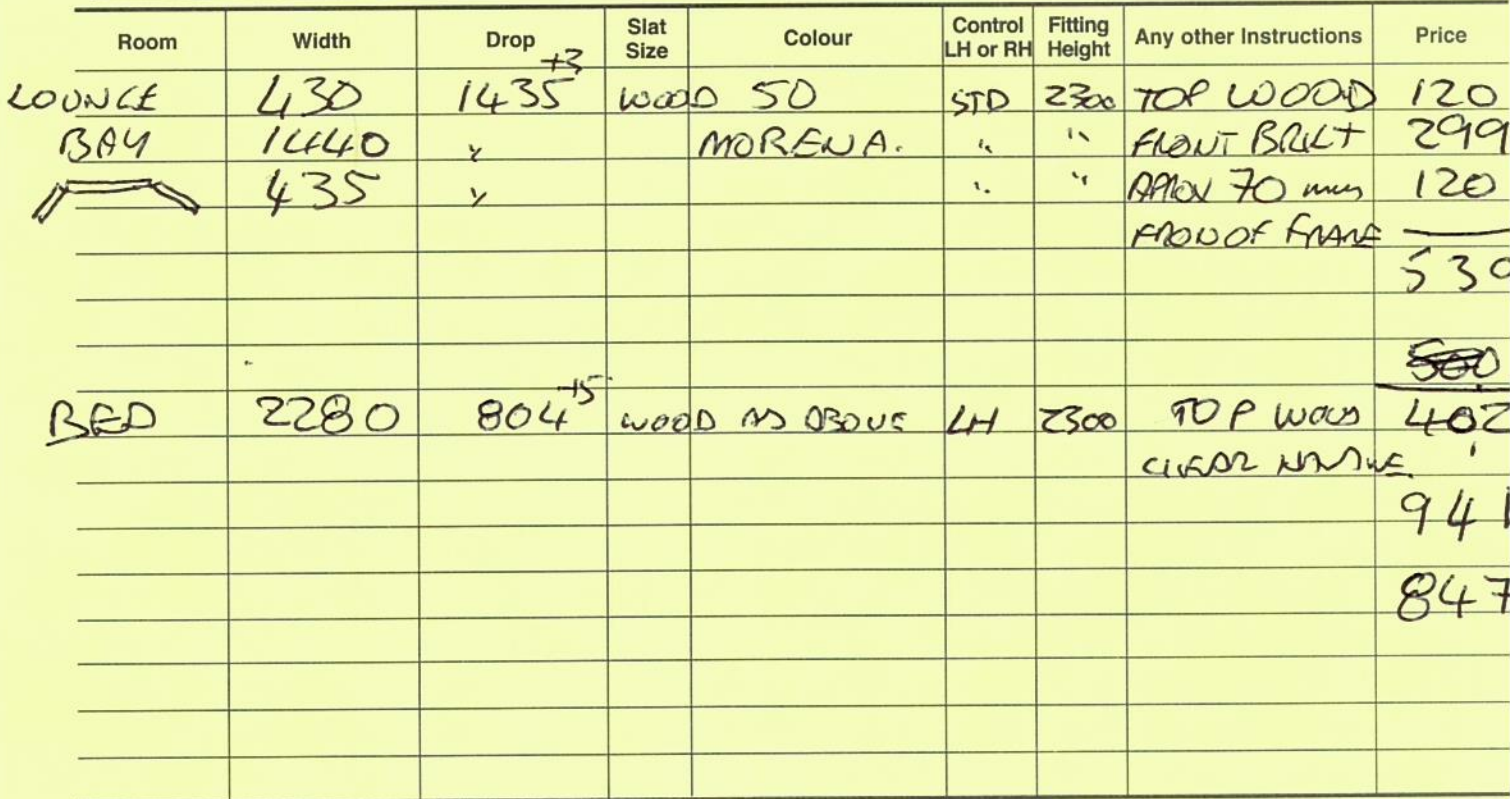 Room Width Drop Slat Size Colour Control LH or RH Fitting Height Any other Instructions Price
+3
LOUNGE 430 1435 WOOD 50 STD 2300 TOP WOOD 120
BAY 1440 " MORENA. " " FRONT 299
435 " " " 70 mm 120
OF FRAME
530
500
+5
BED 2280 804 WOOD AS ABOVE LH 2300 TOP WOOD 402
CLEAR
941
847